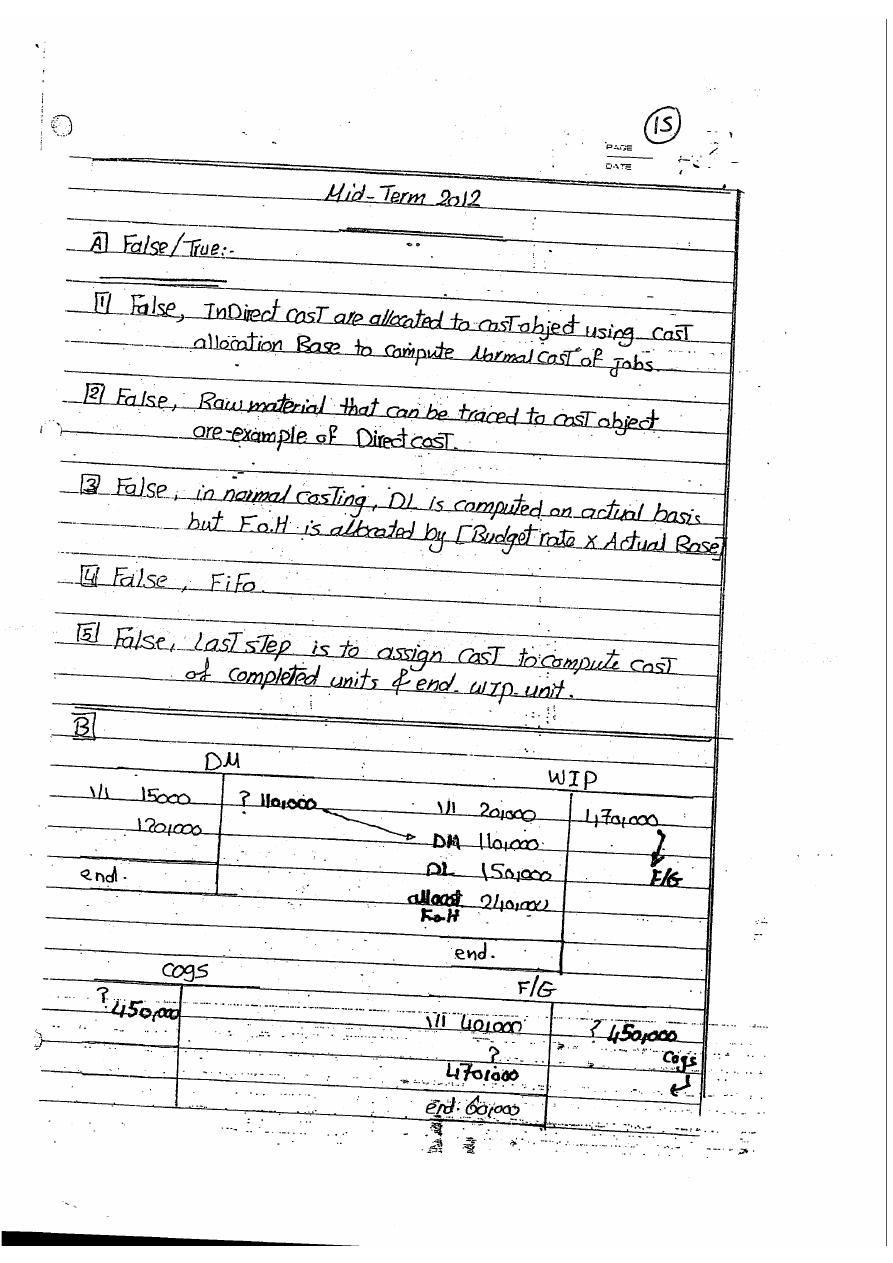 15
PAGE
DATE
Mid-Term 2012
A False/True:-
1 False, InDirect cost are allocated to cost object using cost
allocation Base to compute Normal cost of jobs.
2 False, Raw material that can be traced to cost object
are example of Direct cost.
3 False, in normal costing, DL is computed on actual basis
but F.o.H is allocated by [Budget rate x Actual Base]
4 False, FiFo.
5 False, Last step is to assign cost to compute cost
of completed units & end. WIP unit.
B
DM
WIP
1/1 15000
? 110,000
1/1 20,000
470,000
120,000
DM 110,000
DL 150,000
F/G
end.
allocat 240,000
F.o.H
end.
COGS
F/G
? 450,000
1/1 40,000
? 450,000
Cogs
?
470,000
end. 60,000